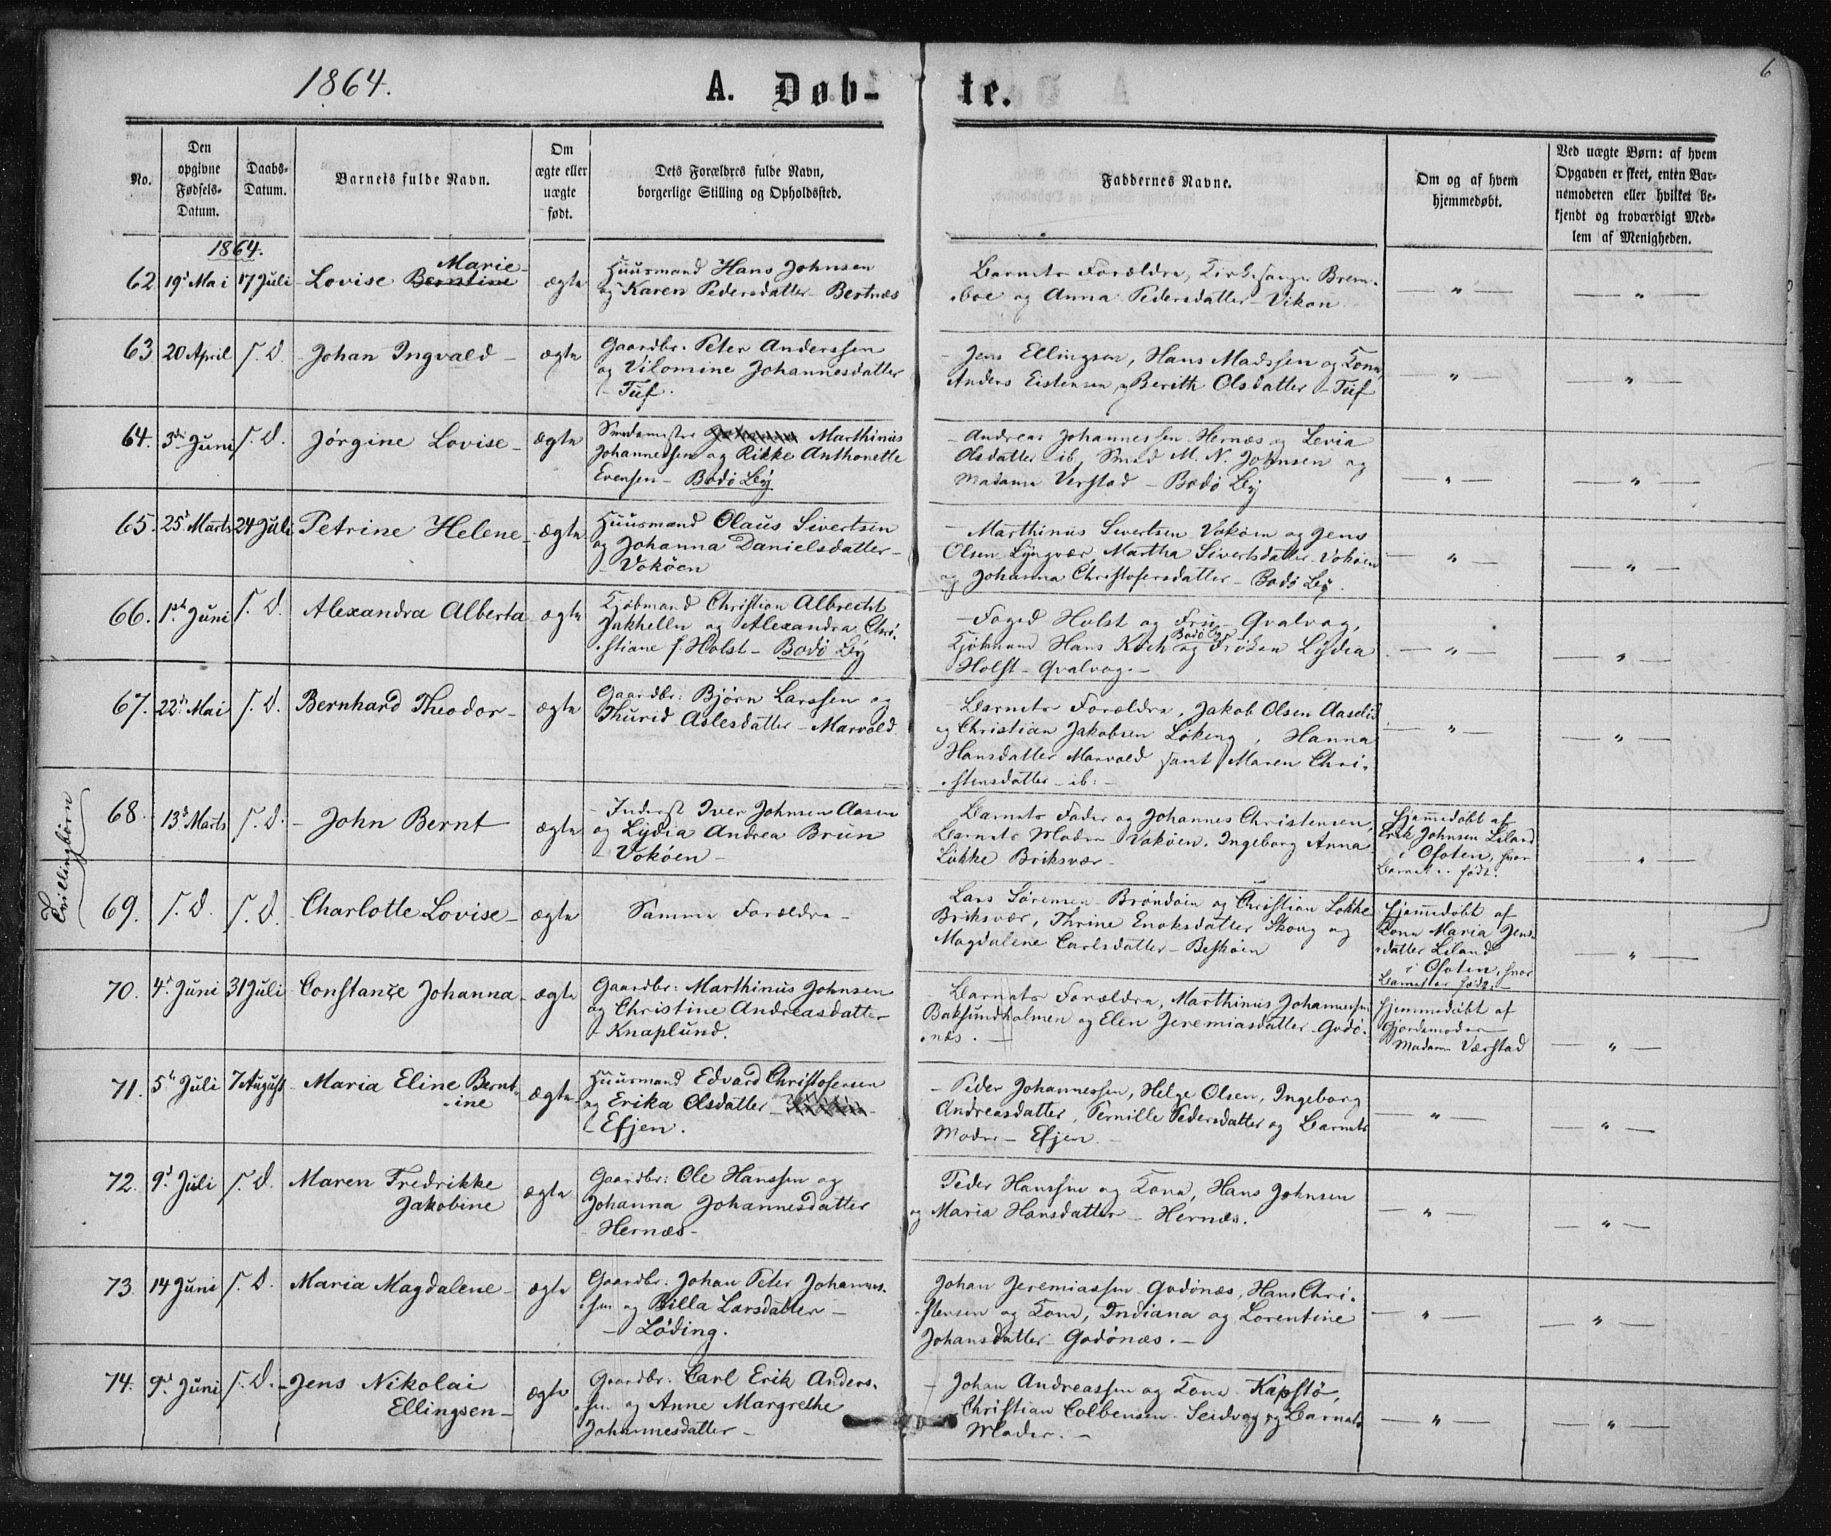 1864.
A. Døb-
te.
6
No.
Den
opgivne
Fødsels-
Datum.
Daabs-
Datum.
Barnets fulde Navn.
Om
ægte eller
uægte
født.
Dets Forældres fulde Navn,
borgerlige Stilling og Opholdssted.
Faddernes Navne.
Om og af hvem
hjemmedøbt.
Ved uægte Børn: af hvem
Opgaven er skeet, enten Bar-
nemoderen eller hvilket be-
kjendt og troværdigt Med-
lem af Menigheden.
1864.
62 19d Mai 17 Juli Lovise Berntine
Marie
ægte
Huusmand Hans Johnsen
og Karen Pedersdatter - Bestnæs
Barnets Forældre, Kirkesanger Brem-
boe og Anna Pedersdatter - Vikan
— " —
— " —
63 20 April s. D. Johan Ingvald - ægte
Gaardbr. Peter Anderssen
og Vilomine Johannesdatter
- Tuf.
- Jens Ellingsen, Hans Madssen og Kone,
Anders Eistensen, Berith Olsdatter - Tuf
"
— " —
64. 3die Juni s. D. Jørgine Lovise - ægte
Smedemester Marthinus
Johannessen og Rikke Anthonette
Evensen - Bodö By
- Andreas Johannessen Hernæs og Levia
Olsdatter ib, Smed M. N. Johnsen og
Madame Verstad - Bodö By
— " —
— " —
65. 25d Marts 24 Juli Petrine Helene - ægte
Huusmand Olaus Sivertsen
og Johanna Danielsdatter -
- Vokøen
- Marthinus Sivertsen Vokøen og Jens
Olsen Lyngvær, Martha Sivertsdatter Vokøen
og Johanna Christofersdatter - Bodö By.
— " —
— " —
66. 1ste Juni s. D. Alexandra Alberta - ægte
Kjøbmand Christian Albrecht
Jakhelln og Alexandra Chri-
stiane f. Holst - Bodö By
- Foged Holst og Frue - Qvalvag,
Kjøbmand Hans Koch Bodö By og Frøken Lydia
Holst - Qvalvag -
— " —
— " —
67. 22d Mai s. D. Bernhard Theodor - ægte
Gaardbr: Bjørn Larssen og
Thurid Aslesdatter - Marvold
- Barnets Forældre, Jakob Olsen Aaselid
og Christian Jakobsen Løkeng, Hanna
Hansdatter Marvold samt Maren Chri-
stensdatter - ib: -
— " —
— " —
Tvillingbörn
68. 13d Marts s. D. - John Bernt ægte
- Inderst Iver Johnsen Aasen
og Lydia Andrea Brun
- Vokøen -
Barnets Fader og Johannes Christensen,
Barnets Moder Vokøen, Ingeborg Anna
Løkke Briksvær -
Hjemmedøbt af
Erik Johnsen Liland
i Ofoten, hvor
Barnet er født.
"
69. s. D. s. D. - Charlotte Lovise - ægte
Samme Forældre -
Lars Sørensen - Brøndøen og Christian Løkke
Briksvær, Thrine Enoksdatter Skoug og
Magdalene Carlsdatter - Beskøen
Hjemmedøbt af
Kone Maria Jens-
datter Liland
i Ofoten, hvor
Barnet er født. -
— " —
70. 4d Juni 31 Juli Constanze Johanna - ægte
Gaardbr: Marthinus Johnsen
og Christine Andreasdatter -
- Knaplund.
- Barnets Forældre, Marthinus Johannessen
Baksundholmen og Elen Jeremiasdatter - Godö-
næs. -
Hjemmedøbt af
Gjordemoder
Madame Værstad
— " —
71. 5te Juli 7 August - Maria Eline Bernt-
ine
ægte
Huusmand Edvard Christofersen
og Erika Olsdatter -
- Efjen.
- Peder Johannessen, Helge Olsen, Ingeborg
Andreasdatter, Pernille Pedersdatter og Barnets
Moder - Efjen -
— " —
— " —
72. 9d Juli s. D. Maren Fredrikke
Jakobine
ægte
Gaardbr: Ole Hanssen og
Johanna Johannesdatter
- Hernæs -
Peder Hanssen og Kone, Hans Johnsen
og Maria Hansdatter - Hernæs.
— " —
— " —
73. 14 Juni s. D. Maria Magdalene - ægte
Gaardbr. Johan Peter Johannes-
sen og Billa Larsdatter -
- Løding.
Johan Jeremiassen Godönæs, Hans Chri-
stensen og Kone, Indiana og Lorentine
Johansdatter - Godönæs. -
— " —
— " —
74. 9d Juni s. D. - Jens Nikolai
Ellingsen -
ægte
Gaardbr. Carl Erik Anders-
sen og Anne Margrethe
Johannesdatter -
- Johan Andreassen og Kone - Kapstø,
Christian Colbensen - Seidvag og Barnets
Moder. -
— " —
— " —